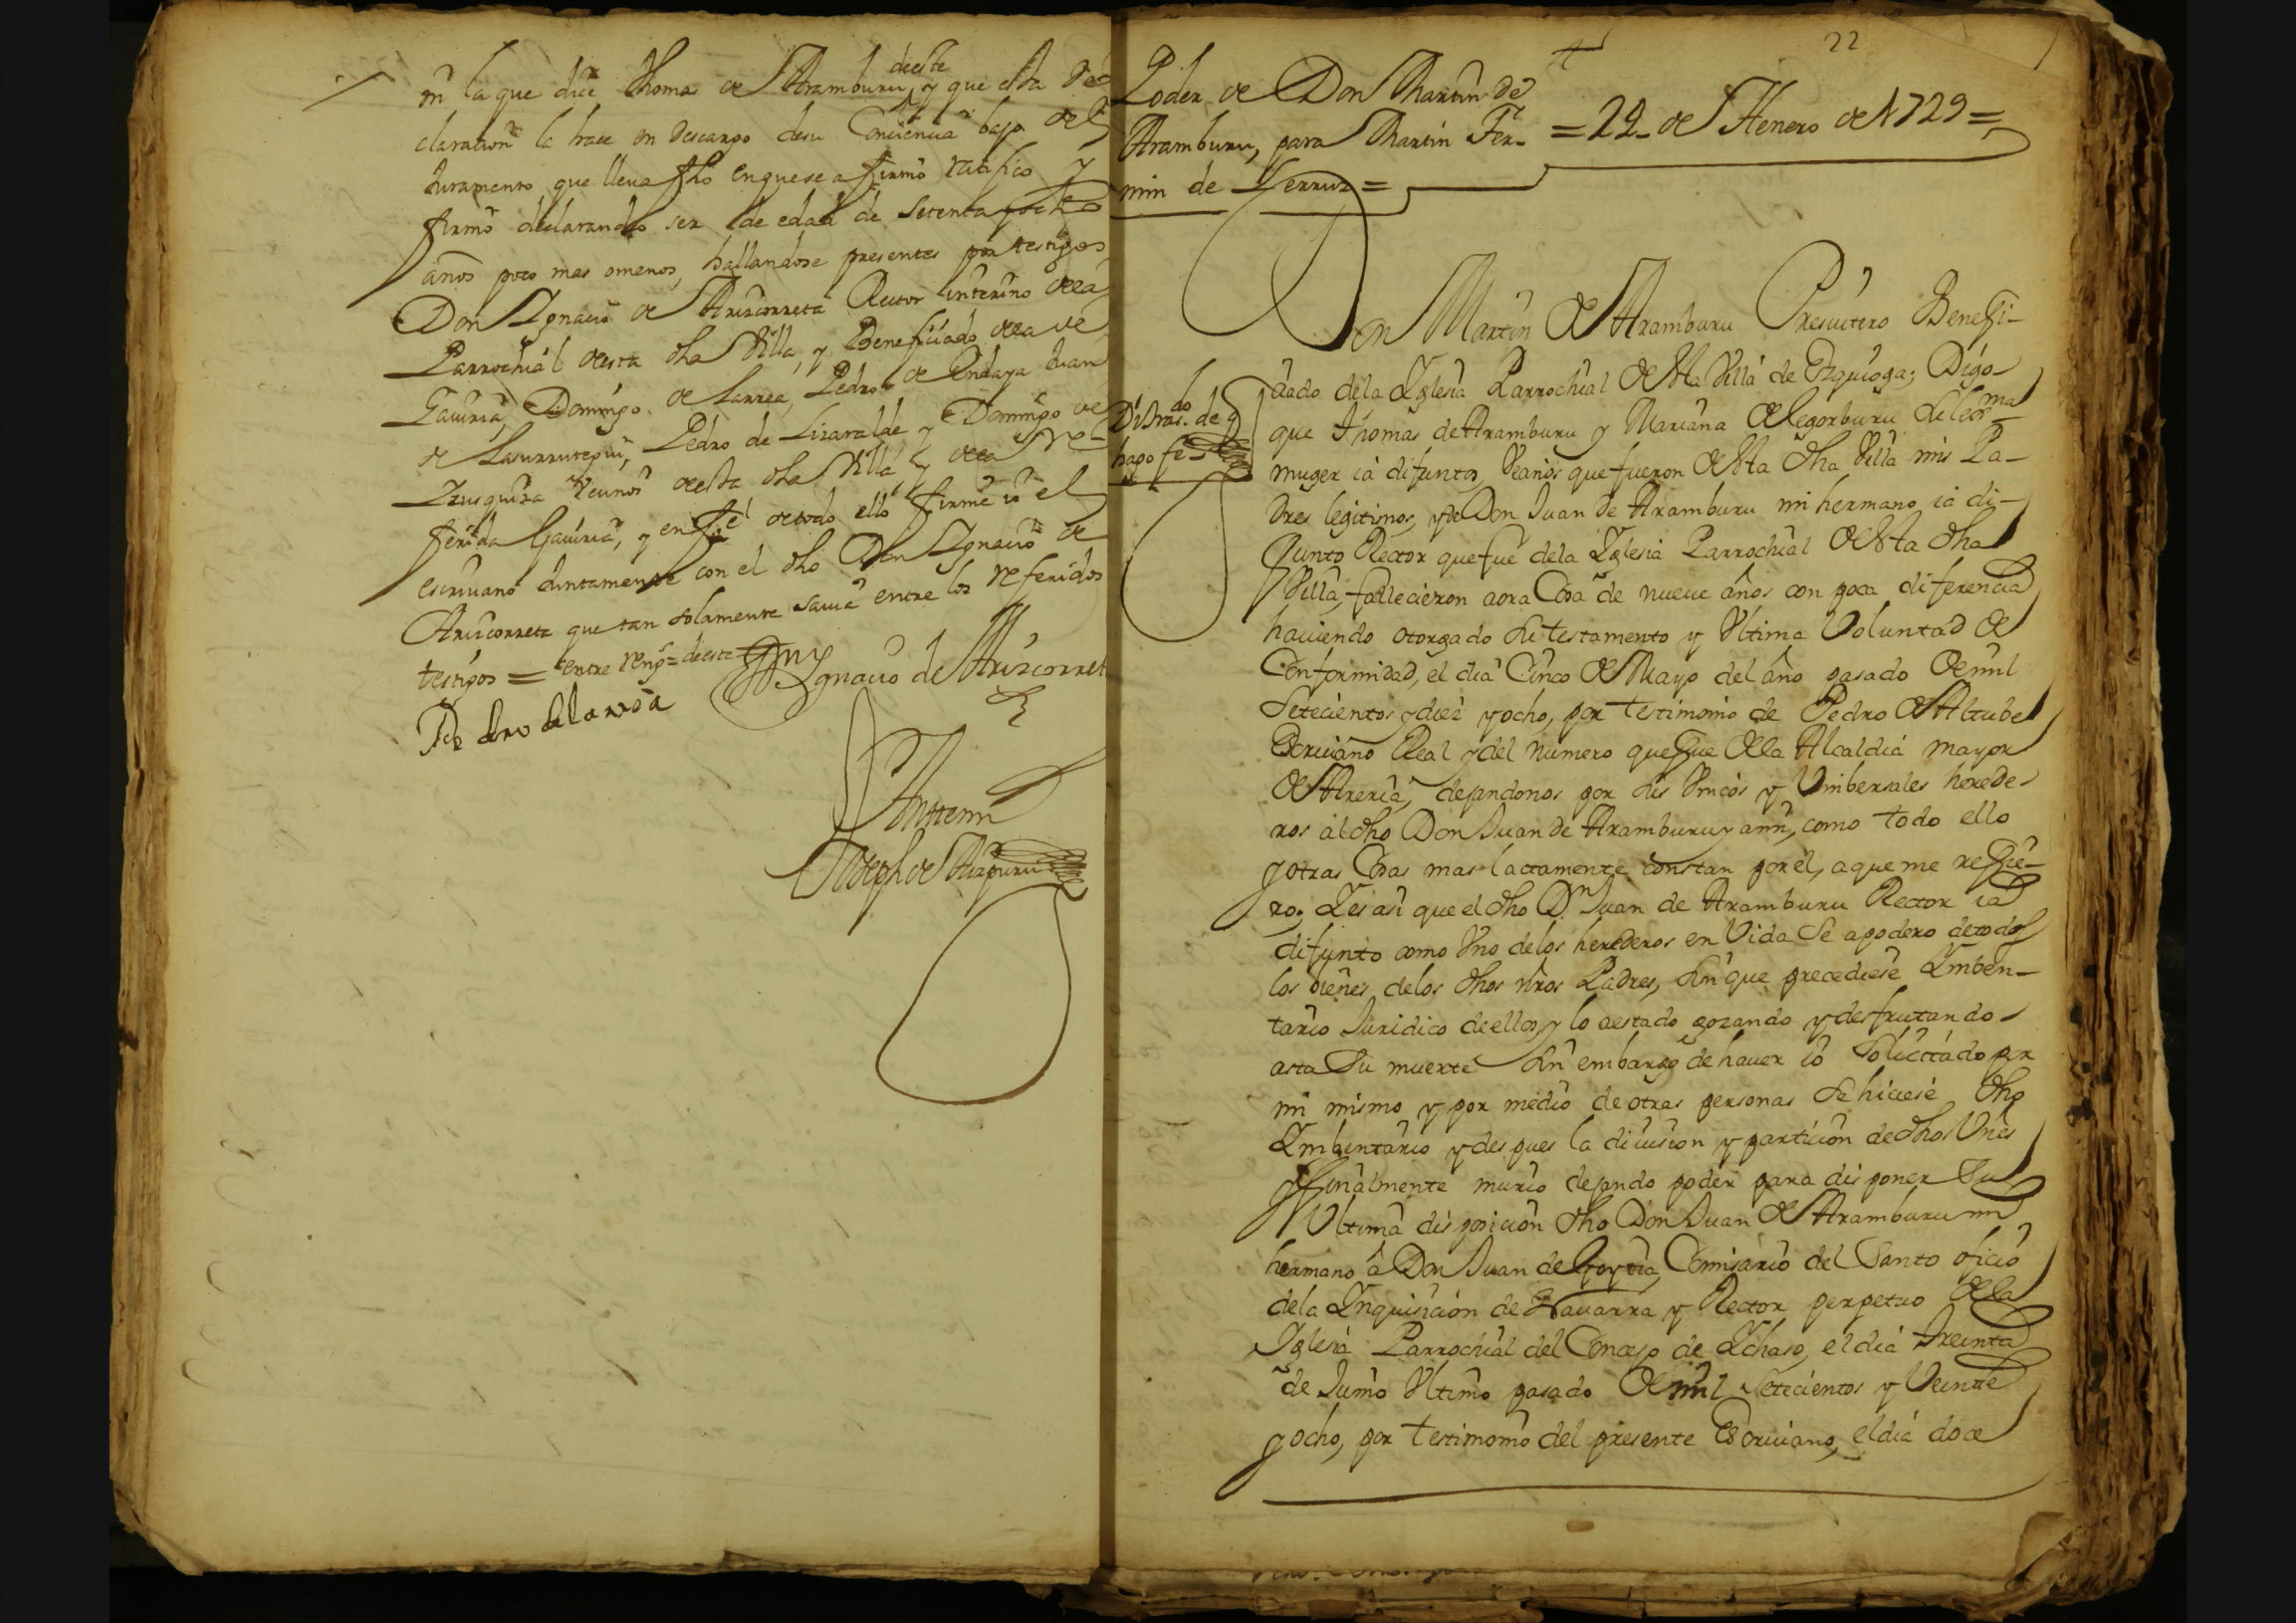 en la que dice Thoma de Aramburu deeste y que esta de-
claracion la hace en descargo desu Conciencia bajo del
Juramento que lleva fho en que se afirmó ratificó y
firmó declarando ser de edad de setenta y ocho
años poco mas omenos, hallandose presentes por testigos
Don Ignacio de Ariscorreta Rector interino dela
Parrochial desta dha Villa, y Beneficiado dela de
Gaviria, Domingo de Larrea, Pedro de Endaya Juan
de Lasurtegui, Pedro de Lizaralde y Domingo de
Izusquiza Vecinos desta dha Villa y dela re-
ferida Gaviria, y en fe de todo ello firmé io el
escrivano Juntamente con el dho Don Ignacio de
Ariscorreta que tan solamente savia entre los referidos
testigos = entre reng.s = deeste
Ignacio de Ariscorreta
Pedro de larrea
Anttemi
Joseph de Aizpuru
22
Poder de Don Martin de
Aramburu, para Martin Fer-
min de = 22 de Henero de 1729 =
Don Martin de Aramburu Presvitero Benefi-
ciado dela Yglesia Parrochial desta Villa de Ezquioga; Digo
que Thomas de Aramburu y Mariana de Legorburu su lexma
muger ia difuntos, Vecinos que fueron desta dha Villa mis Pa-
dres legitimos, y de Don Juan de Aramburu mi hermano ia di-
funto Rector que fue dela Yglesia Parrochial desta dha
Villa, fallecieron aora Cosa de nueve años con poca diferencia
haviendo otorgado su testamento y Ultima Voluntad de
Conformidad, el dia Cinco de Mayo del año pasado de mil
Setecientos y diez y ocho, por testimonio de Pedro de Altube
Escrivano Real y del numero que fue dela Alcaldia mayor
de Areria, dejandonos por sus Unicos y Unibersales herede-
ros al dho Don Juan de Aramburu y ami, como todo ello
y otras Cosas mas lactamente constan por el, aque me refie-
ro; Y es asi que el dho Dn Juan de Aramburu Rector ia
difunto como Uno delos herederos en Vida se apodero de todos
los vienes delos dhos nros Padres, sin que precediese Ymben-
tario Juridico de ellos, y lo aestado gozando y desfrutando
asta Su muerte Sin embargo de haver io Solicitado por
mi mismo y por medio de otras personas Se hiciese dho
Ymbentario y despues la divission y particion de dhos Vnes
y finalmente murio dejando poder para disponer Su
Ultima disposicion dho Don Juan de Aramburu mi
hermano â Don Juan de Goytia Comisario del Santo oficio
dela Ynquisicion de Navarra y Rector perpetuo dela
Yglesia Parrochial del Concejo de Ychaso, el dia treinta
de Junio Ultimo pasado de mil Setecientos y Veinte
y ocho, por testimonio del presente Escrivano, el dia doce